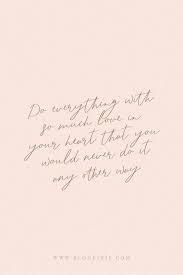 Do everything with
so much love in
your heart that you
would never do it
any other way